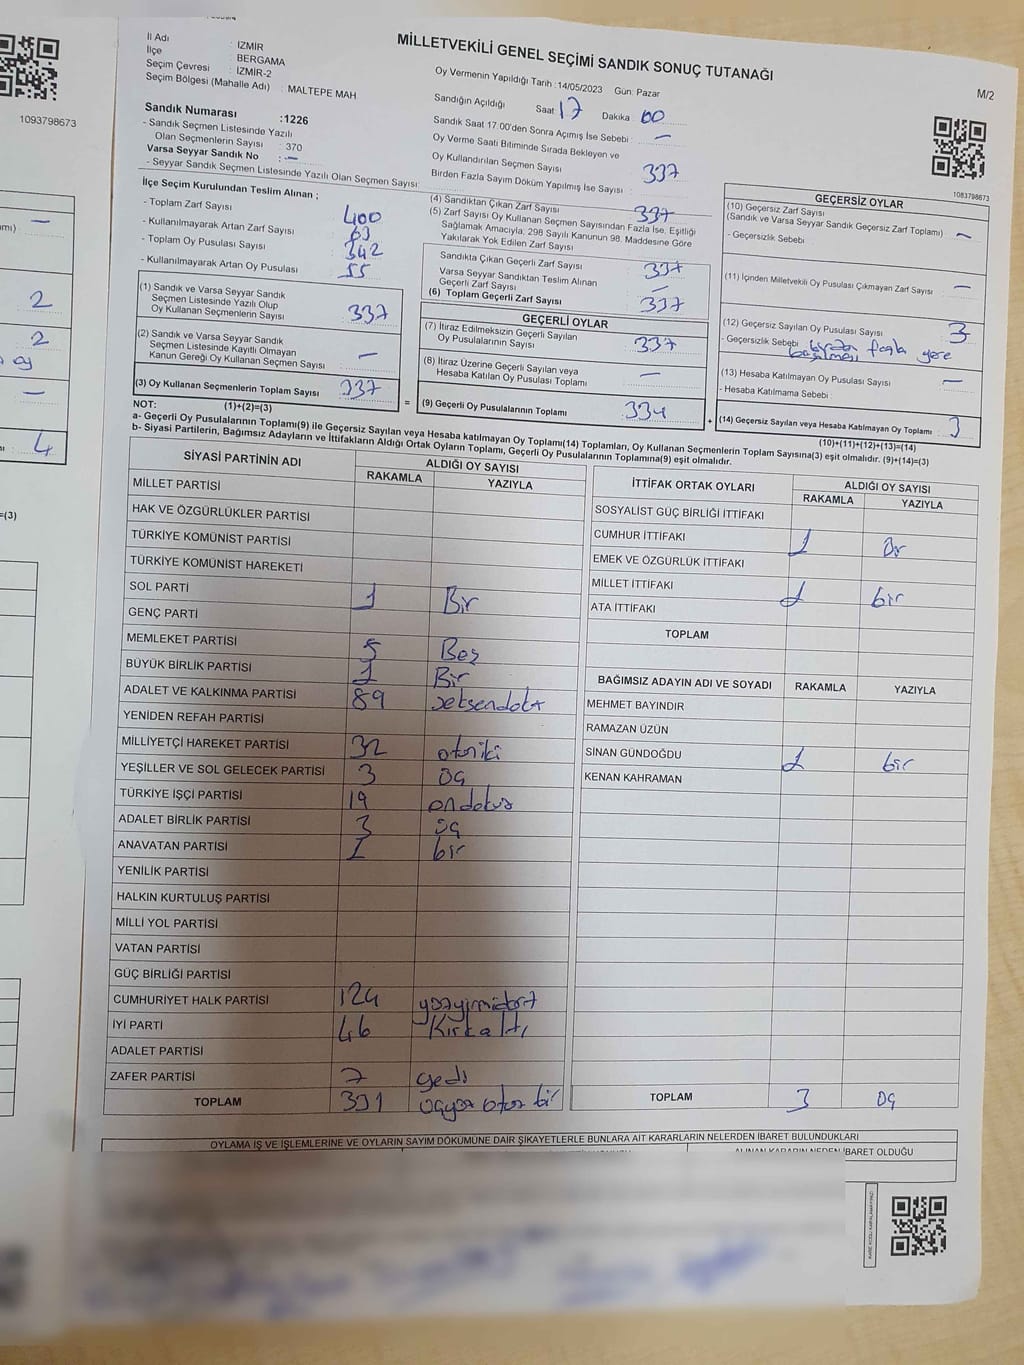 1093798673
MİLLETVEKİLİ GENEL SEÇİMİ SANDIK SONUÇ TUTANAĞI
M/2
İl Adı : İZMİR
İlçe : BERGAMA
Seçim Çevresi : İZMİR-2
Seçim Bölgesi (Mahalle Adı) : MALTEPE MAH
Oy Vermenin Yapıldığı Tarih : 14/05/2023 Gün: Pazar
Sandığın Açıldığı Saat 17 Dakika 00
Sandık Saat 17:00'den Sonra Açımış İse Sebebi : —
Oy Verme Saati Bitiminde Sırada Bekleyen ve
Oy Kullandırılan Seçmen Sayısı 337
Birden Fazla Sayım Döküm Yapılmış İse Sayısı :
Sandık Numarası :1226
- Sandık Seçmen Listesinde Yazılı
Olan Seçmenlerin Sayısı : 370
Varsa Seyyar Sandık No : —
- Seyyar Sandık Seçmen Listesinde Yazılı Olan Seçmen Sayısı:
İlçe Seçim Kurulundan Teslim Alınan ;
- Toplam Zarf Sayısı 400
- Kullanılmayarak Artan Zarf Sayısı 63
- Toplam Oy Pusulası Sayısı 342
- Kullanılmayarak Artan Oy Pusulası 55
(1) Sandık ve Varsa Seyyar Sandık
Seçmen Listesinde Yazılı Olup
Oy Kullanan Seçmenlerin Sayısı 337
(2) Sandık ve Varsa Seyyar Sandık
Seçmen Listesinde Kayıtlı Olmayan
Kanun Gereği Oy Kullanan Seçmen Sayısı —
(3) Oy Kullanan Seçmenlerin Toplam Sayısı 337
(1)+(2)=(3)
(4) Sandıktan Çıkan Zarf Sayısı 337
(5) Zarf Sayısı Oy Kullanan Seçmen Sayısından Fazla İse, Eşitliği
Sağlamak Amacıyla, 298 Sayılı Kanunun 98. Maddesine Göre
Yakılarak Yok Edilen Zarf Sayısı
Sandıkta Çıkan Geçerli Zarf Sayısı 337
Varsa Seyyar Sandıktan Teslim Alınan
Geçerli Zarf Sayısı —
(6) Toplam Geçerli Zarf Sayısı 337
GEÇERLİ OYLAR
(7) İtiraz Edilmeksizin Geçerli Sayılan
Oy Pusulalarının Sayısı 337
(8) İtiraz Üzerine Geçerli Sayılan veya
Hesaba Katılan Oy Pusulası Toplamı —
= (9) Geçerli Oy Pusulalarının Toplamı 334
1083798673
GEÇERSİZ OYLAR
(10) Geçersiz Zarf Sayısı
(Sandık ve Varsa Seyyar Sandık Geçersiz Zarf Toplamı) —
- Geçersizlik Sebebi
(11) İçinden Milletvekili Oy Pusulası Çıkmayan Zarf Sayısı —
(12) Geçersiz Sayılan Oy Pusulası Sayısı 3
- Geçersizlik Sebebi : birden fazla yere
basılması
(13) Hesaba Katılmayan Oy Pusulası Sayısı —
- Hesaba Katılmama Sebebi :
+ (14) Geçersiz Sayılan veya Hesaba Katılmayan Oy Toplamı 3
(10)+(11)+(12)+(13)=(14)
NOT:
a- Geçerli Oy Pusulalarının Toplamı(9) ile Geçersiz Sayılan veya Hesaba katılmayan Oy Toplamı(14) Toplamları, Oy Kullanan Seçmenlerin Toplam Sayısına(3) eşit olmalıdır. (9)+(14)=(3)
b- Siyasi Partilerin, Bağımsız Adayların ve İttifakların Aldığı Ortak Oyların Toplamı, Geçerli Oy Pusulalarının Toplamına(9) eşit olmalıdır.
SİYASİ PARTİNİN ADI ALDIĞI OY SAYISI
RAKAMLA YAZIYLA
MİLLET PARTİSİ
HAK VE ÖZGÜRLÜKLER PARTİSİ
TÜRKİYE KOMÜNİST PARTİSİ
TÜRKİYE KOMÜNİST HAREKETİ
SOL PARTİ 1 Bir
GENÇ PARTİ
MEMLEKET PARTİSİ 5 Beş
BÜYÜK BİRLİK PARTİSİ 1 Bir
ADALET VE KALKINMA PARTİSİ 89 seksendokz
YENİDEN REFAH PARTİSİ
MİLLİYETÇİ HAREKET PARTİSİ 32 otuziki
YEŞİLLER VE SOL GELECEK PARTİSİ 3 üç
TÜRKİYE İŞÇİ PARTİSİ 19 ondokuz
ADALET BİRLİK PARTİSİ 3 üç
ANAVATAN PARTİSİ 1 bir
YENİLİK PARTİSİ
HALKIN KURTULUŞ PARTİSİ
MİLLİ YOL PARTİSİ
VATAN PARTİSİ
GÜÇ BİRLİĞİ PARTİSİ
CUMHURİYET HALK PARTİSİ 124 yüzyirmidört
İYİ PARTİ 46 Kırkaltı
ADALET PARTİSİ
ZAFER PARTİSİ 7 yedi
TOPLAM 331 üçyüz otuz bir
İTTİFAK ORTAK OYLARI ALDIĞI OY SAYISI
RAKAMLA YAZIYLA
SOSYALİST GÜÇ BİRLİĞİ İTTİFAKI
CUMHUR İTTİFAKI 1 Bir
EMEK VE ÖZGÜRLÜK İTTİFAKI
MİLLET İTTİFAKI 1 bir
ATA İTTİFAKI
TOPLAM
BAĞIMSIZ ADAYIN ADI VE SOYADI RAKAMLA YAZIYLA
MEHMET BAYINDIR
RAMAZAN ÜZÜN
SİNAN GÜNDOĞDU 1 bir
KENAN KAHRAMAN
TOPLAM 3 üç
OYLAMA İŞ VE İŞLEMLERİNE VE OYLARIN SAYIM DÖKÜMÜNE DAİR ŞİKAYETLERLE BUNLARA AİT KARARLARIN NELERDEN İBARET BULUNDUKLARI
ALINAN KARARIN NEDEN İBARET OLDUĞU
—
2
2
oy
—
4
=(3)